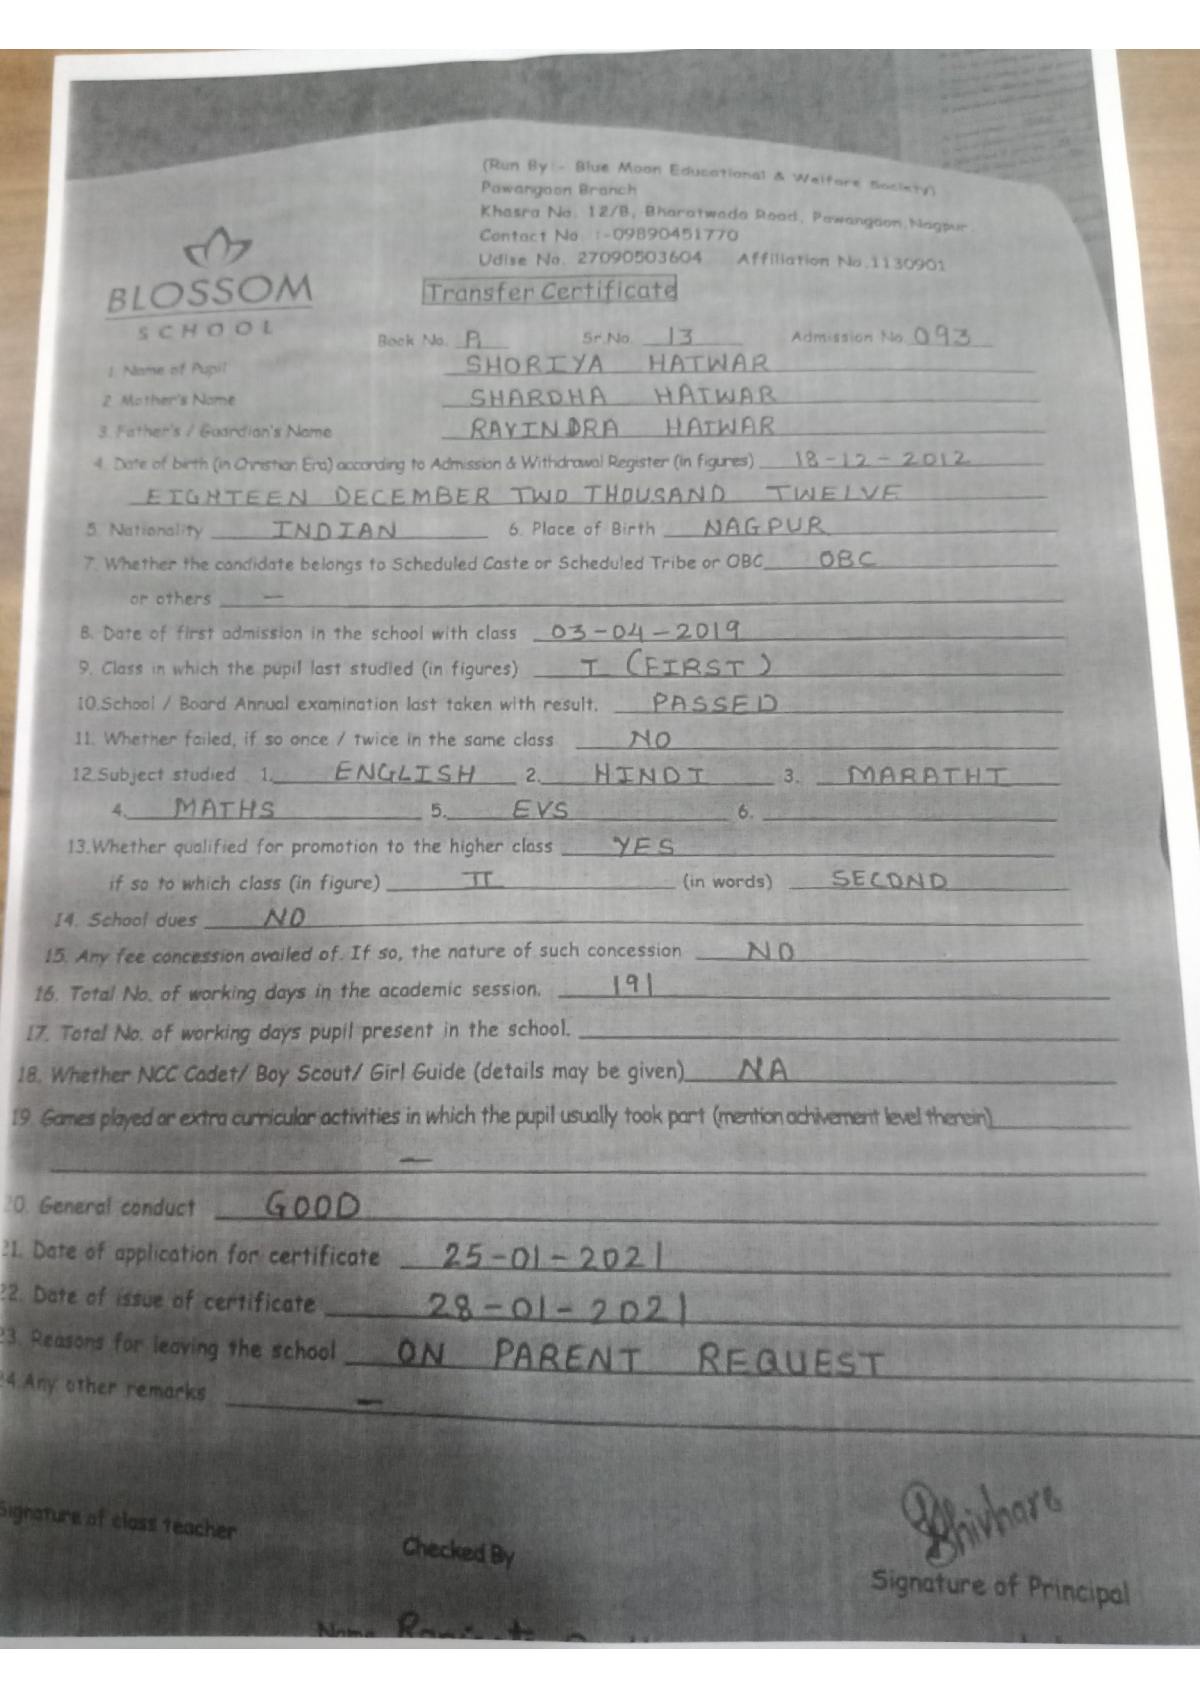 (Run By :- Blue Moon Educational & Welfare Society)
Pawangaon Branch
Khasra No. 12/B, Bharatwada Road, Pawangaon, Nagpur.
Contact No. :-09890451770
Udise No. 27090503604 Affiliation No.1130901
BLOSSOM
SCHOOL
Transfer Certificate
Book No. A Sr.No. 13 Admission No. 093
1. Name of Pupil SHORIYA HATWAR
2. Mother's Name SHARDHA HATWAR
3. Father's / Guardian's Name RAVINDRA HATWAR
4. Date of birth (in Christian Era) according to Admission & Withdrawal Register (in figures) 18-12-2012
EIGHTEEN DECEMBER TWO THOUSAND TWELVE
5. Nationality INDIAN 6. Place of Birth NAGPUR
7. Whether the candidate belongs to Scheduled Caste or Scheduled Tribe or OBC OBC
or others —
8. Date of first admission in the school with class 03-04-2019
9. Class in which the pupil last studied (in figures) I (FIRST)
10.School / Board Annual examination last taken with result. PASSED
11. Whether failed, if so once / twice in the same class NO
12.Subject studied 1. ENGLISH 2. HINDI 3. MARATHI
4. MATHS 5. EVS 6.
13.Whether qualified for promotion to the higher class YES
if so to which class (in figure) II (in words) SECOND
14. School dues NO
15. Any fee concession availed of. If so, the nature of such concession NO
16. Total No. of working days in the academic session. 191
17. Total No. of working days pupil present in the school.
18. Whether NCC Cadet/ Boy Scout/ Girl Guide (details may be given) NA
19. Games played or extra curricular activities in which the pupil usually took part (mention achivement level therein)
—
20. General conduct GOOD
21. Date of application for certificate 25-01-2021
22. Date of issue of certificate 28-01-2021
23. Reasons for leaving the school ON PARENT REQUEST
24.Any other remarks —
Signature of class teacher
Checked By
Signature of Principal
Name